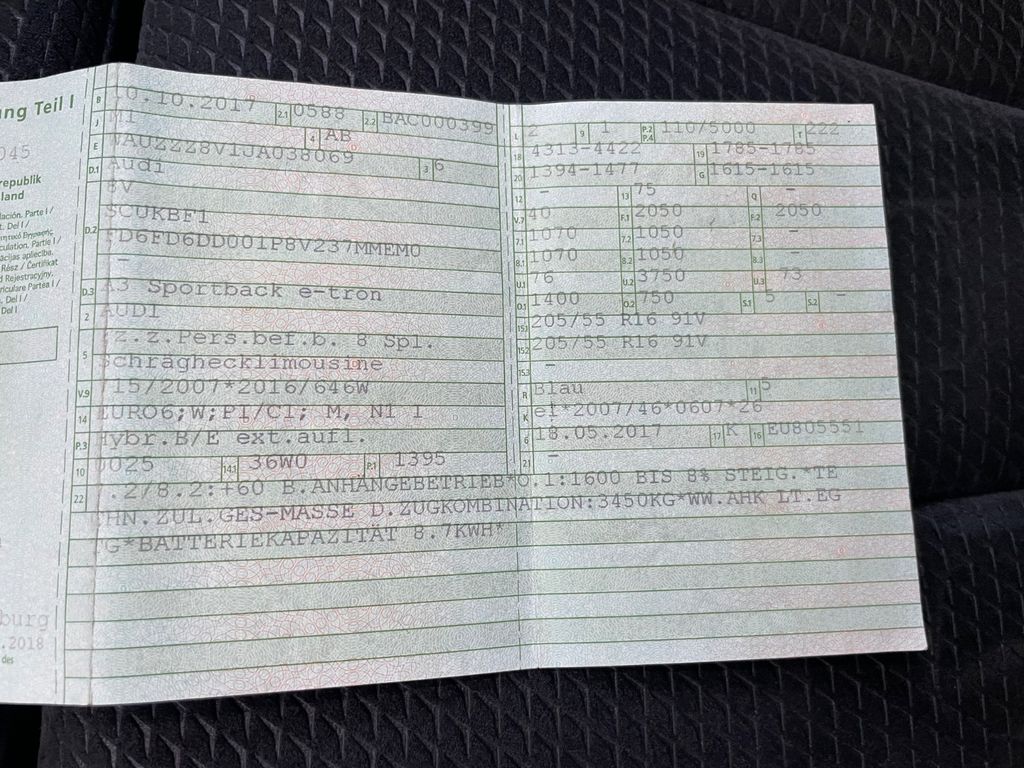 ng Teil I
045
republik
land
ación. Parte I /
t. Del I /
culation. Partie I /
ācijas apliecība.
Rész / Certifikat
d Rejestracyjny.
riculare Partea I /
. Del I /
Del I
burg
.2018
des
B 10.10.2017 2.1 0588 2.2 BAC000399
J M1 4 AB
E WAUZZZ8V1JA038069 3 6
D.1 Audi
8V
D.2 SCUKBF1
FD6FD6DD001P8V237MMEM0
-
D.3 A3 Sportback e-tron
2 AUDI
5 Fz.z.Pers.bef.b. 8 Spl.
Schräghecklimousine
V.9 715/2007*2016/646W
14 EURO6;W;PI/CI; M, N1 I
P.3 Hybr.B/E ext.aufl.
10 0025 14.1 36W0 P.1 1395
L 2 9 1 P.2 P.4 110/5000 T 222
18 4313-4422 19 1785-1785
20 1394-1477 G 1615-1615
12 - 13 75 Q -
V.7 40 F.1 2050 F.2 2050
7.1 1070 7.2 1050 7.3 -
8.1 1070 8.2 1050 8.3 -
U.1 76 U.2 3750 U.3 73
O.1 1400 O.2 750 S.1 5 S.2 -
15.1 205/55 R16 91V
15.2 205/55 R16 91V
15.3 -
R Blau 11 5
K e1*2007/46*0607*26
6 18.05.2017 17 K 16 EU805551
21 -
22 .2/8.2:+60 B.ANHÄNGEBETRIEB*O.1:1600 BIS 8% STEIG.*TE
CHN.ZUL.GES-MASSE D.ZUGKOMBINATION:3450KG*WW.AHK LT.EG
TG*BATTERIEKAPAZITÄT 8.7KWH*